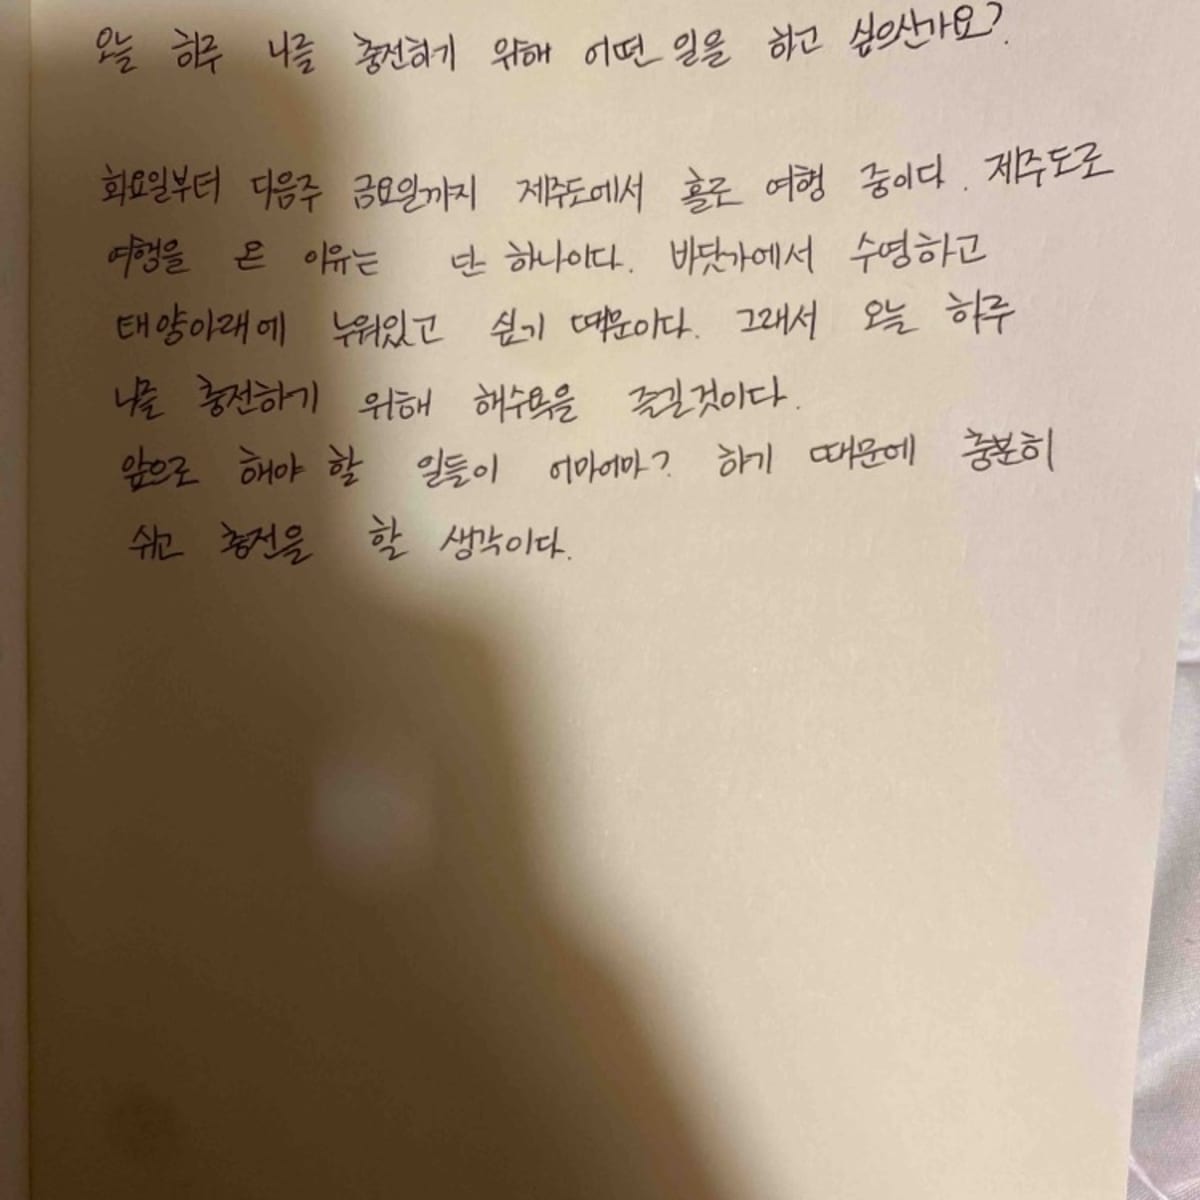 오늘 하루 나를 충전하기 위해 어떤 일을 하고 싶으신가요?
화요일부터 다음주 금요일까지 제주도에서 홀로 여행 중이다. 제주도로
여행을 온 이유는 단 하나이다. 바닷가에서 수영하고
태양아래에 누워있고 싶기 때문이다. 그래서 오늘 하루
나를 충전하기 위해 해수욕을 즐길것이다.
앞으로 해야 할 일들이 어마어마? 하기 때문에 충분히
쉬고 충전을 할 생각이다.